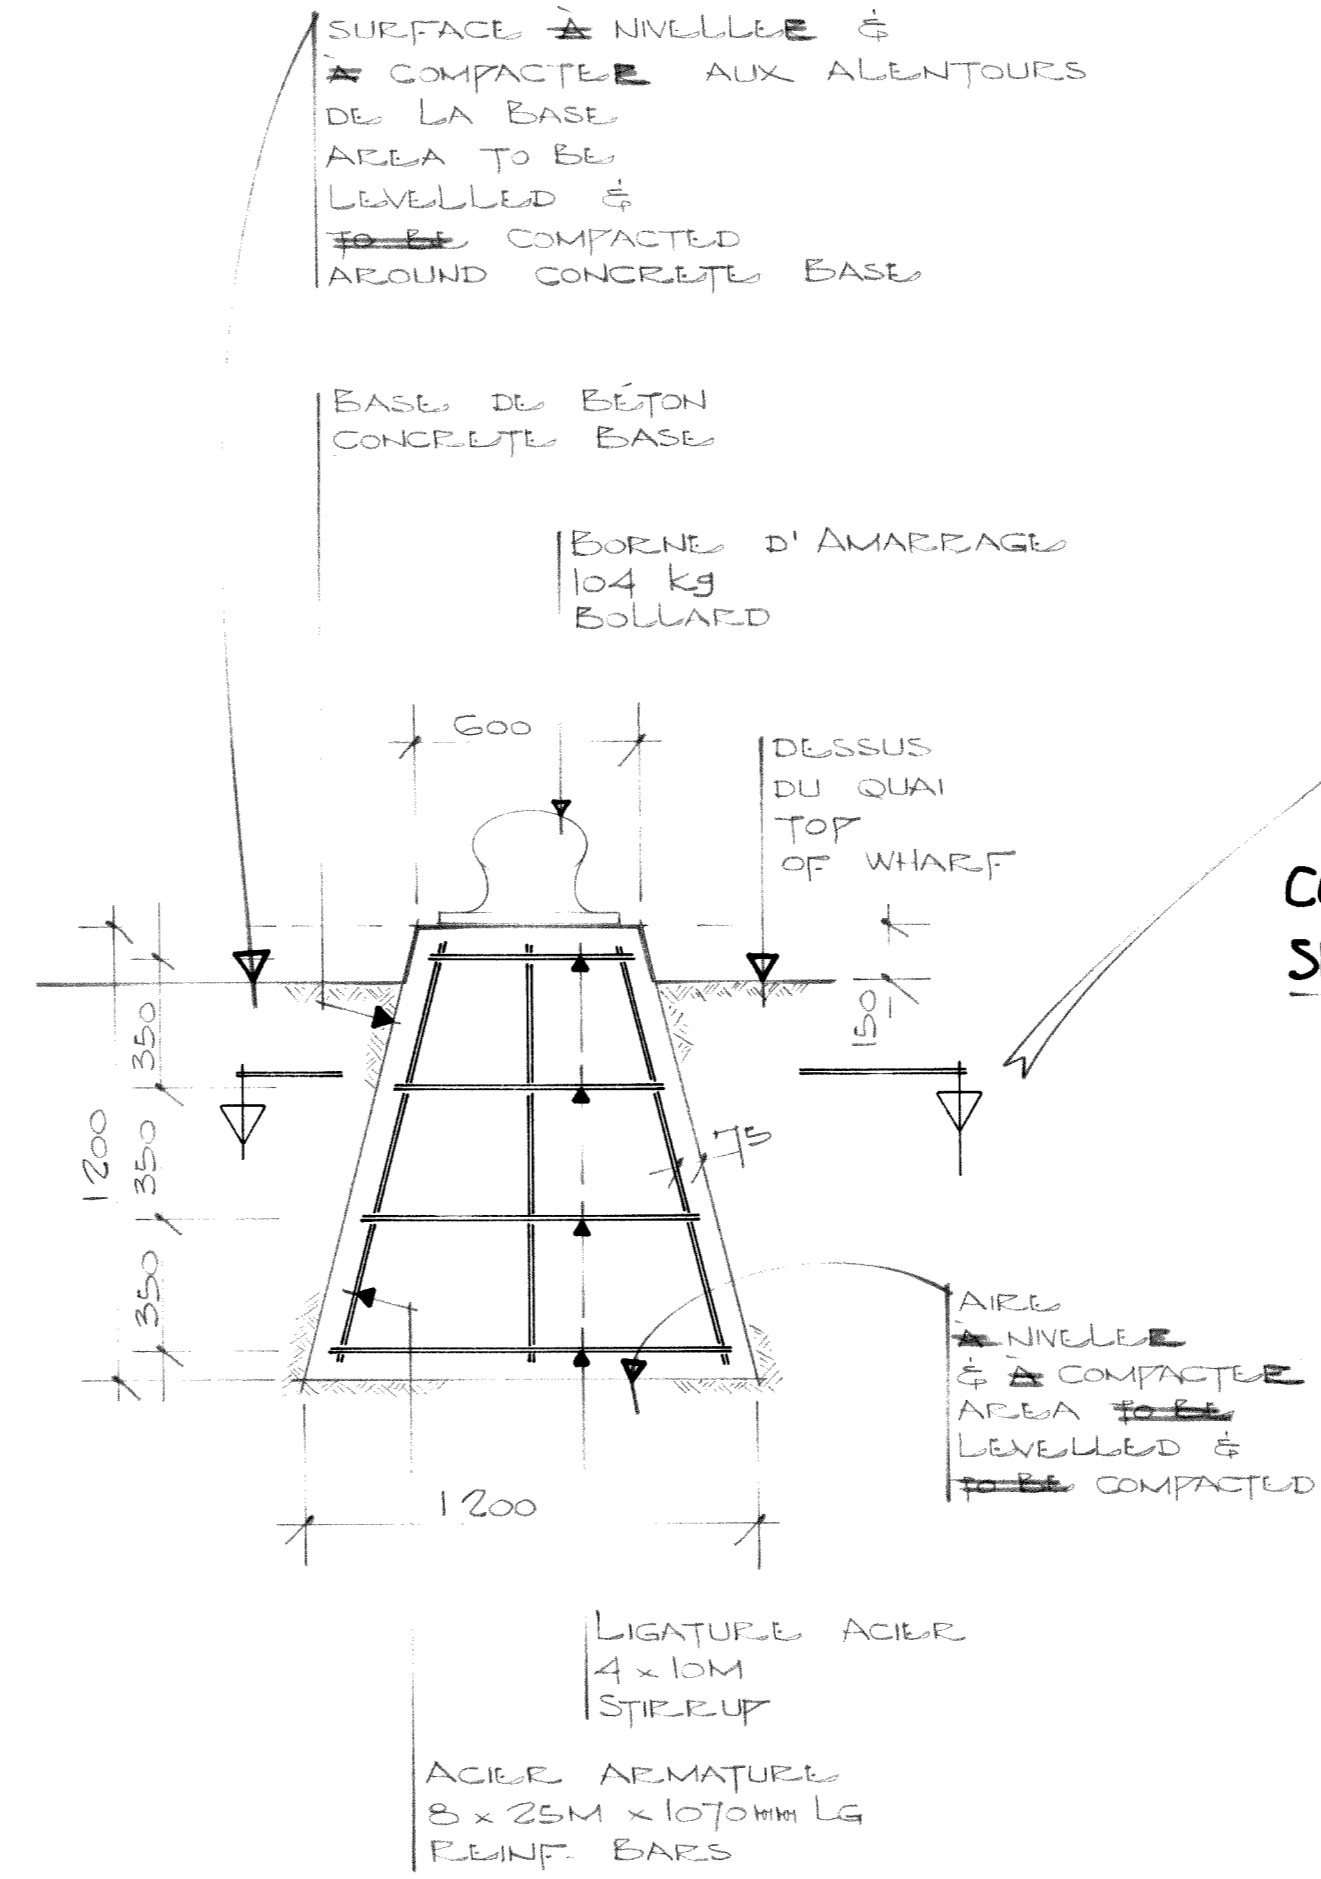 SURFACE À NIVELLEE &
À COMPACTEE AUX ALENTOURS
DE LA BASE
AREA TO BE
LEVELLED &
TO BE COMPACTED
AROUND CONCRETE BASE
BASE DE BÉTON
CONCRETE BASE
BORNE D'AMARRAGE
104 kg
BOLLARD
600
DESSUS
DU QUAI
TOP
OF WHARF
150
1200
350
350
350
75
AIRE
À NIVELEE
& À COMPACTEE
AREA TO BE
LEVELLED &
TO BE COMPACTED
1200
LIGATURE ACIER
4 x 10M
STIRRUP
ACIER ARMATURE
8 x 25M x 1070mm LG
REINF. BARS